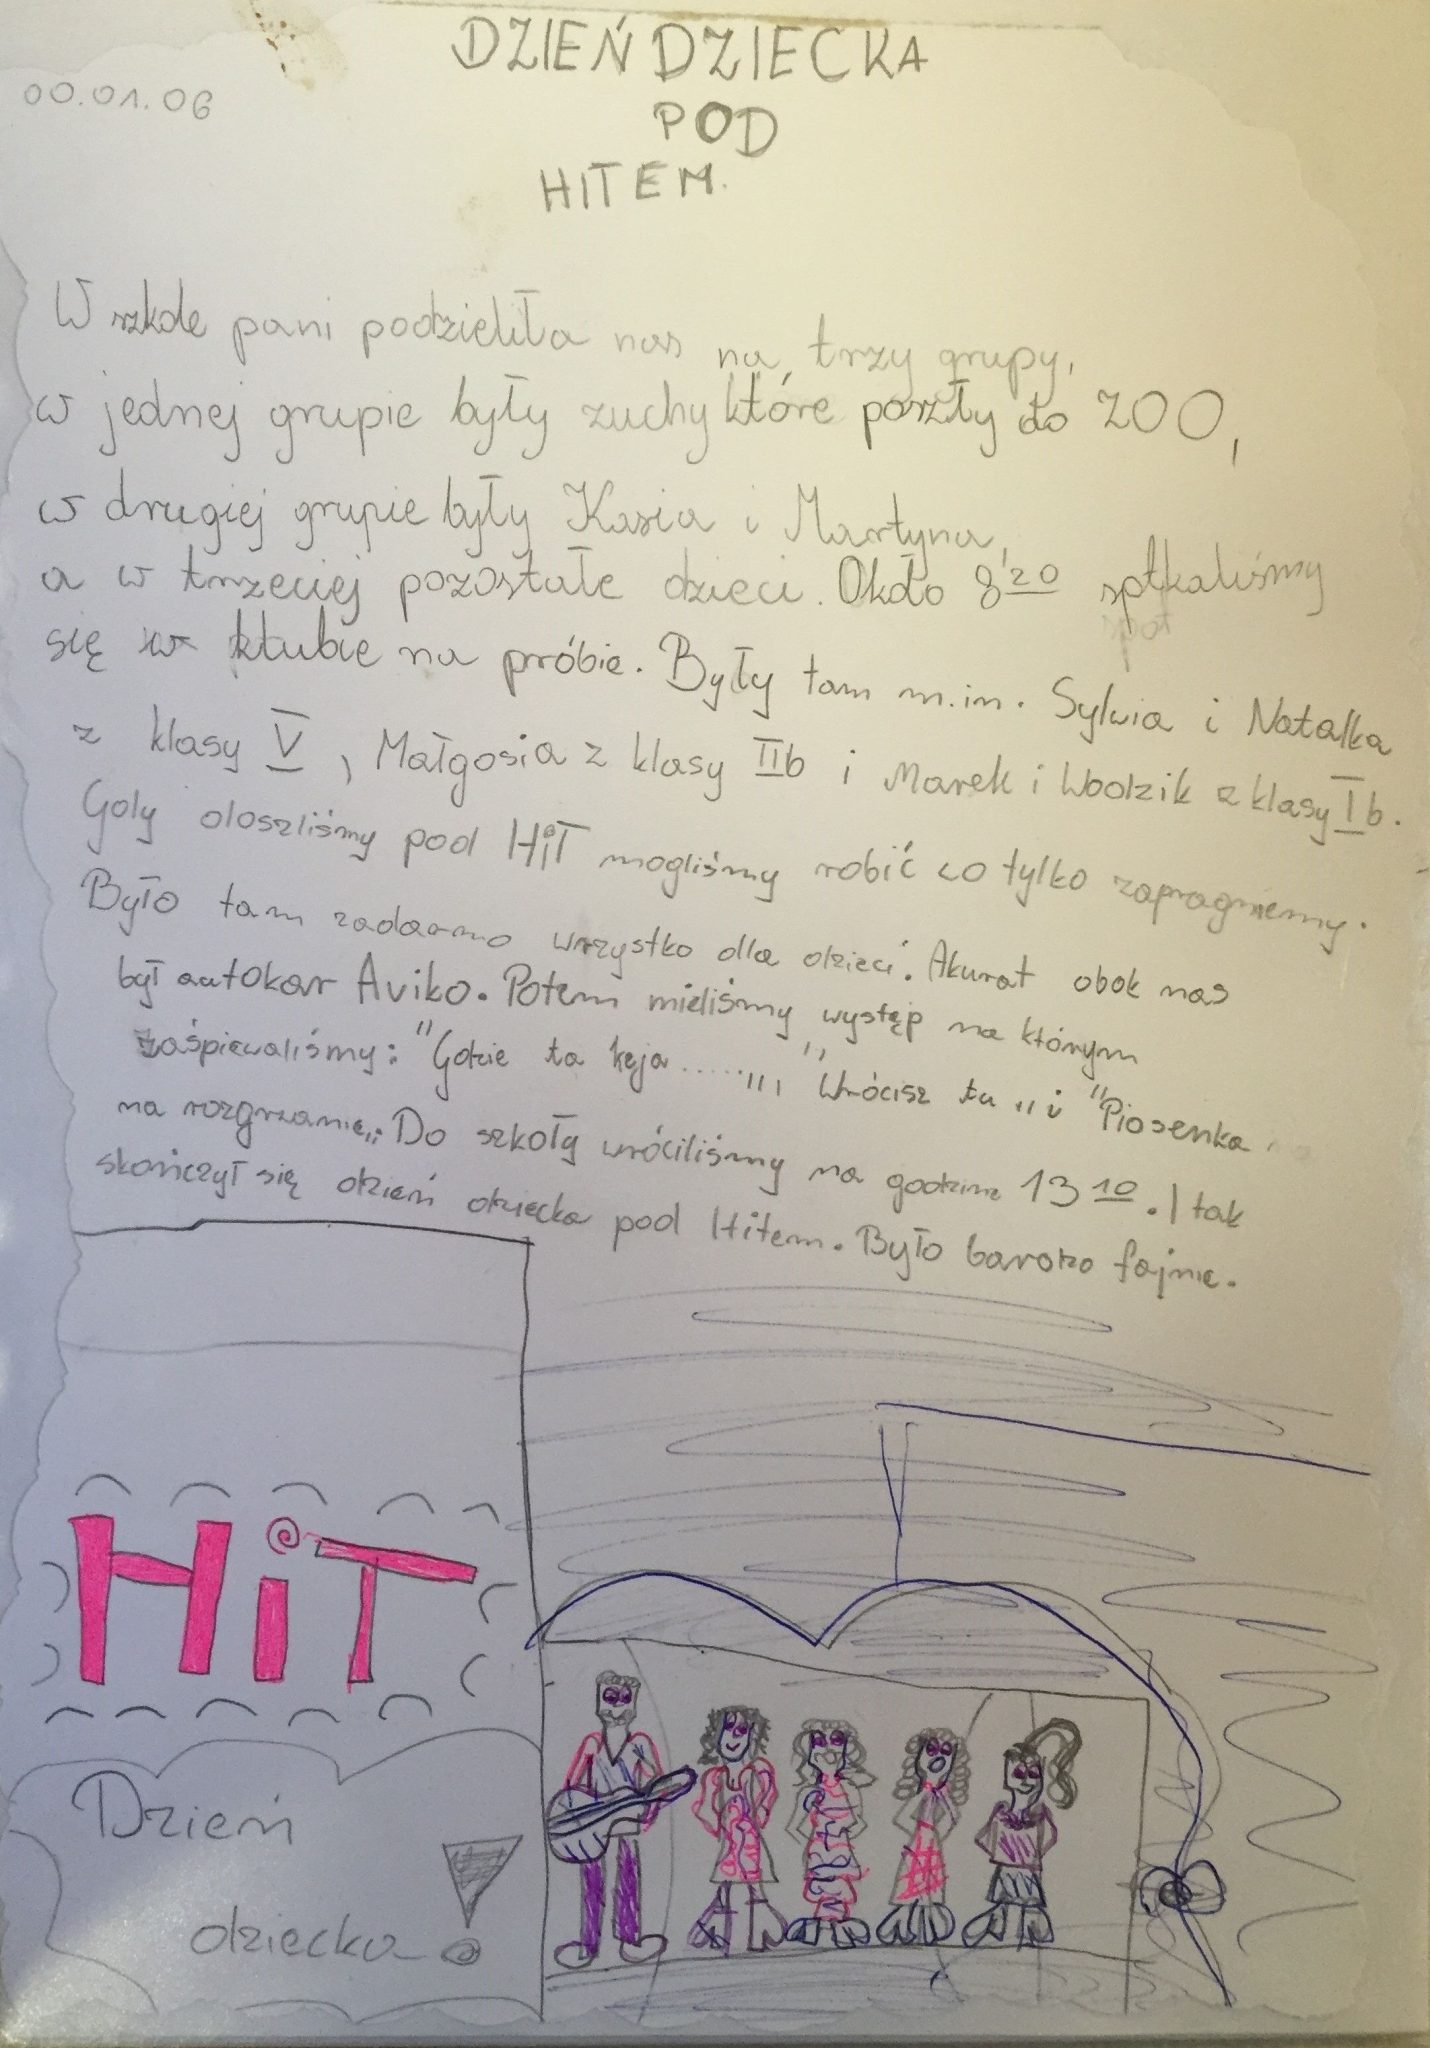 DZIEŃ DZIECKA
00.01.06
POD
HITEM.
W szkole pani podzieliła nas na trzy grupy,
w jednej grupie były zuchy które poszły do ZOO,
w drugiej grupie były Kasia i Martyna,
a w trzeciej pozostałe dzieci. Około 8 20 sptkaliśmy
się w klubie na próbie. Były tam m.in. Sylwia i Natalka
z klasy V, Małgosia z klasy IIb i Marek i Włodzik z klasy Ib.
Gdy doszliśmy pod HiT mogliśmy robić co tylko zapragniemy.
Było tam zadarmo wszystko dla dzieci. Akurat obok nas
był autokar Aviko. Potem mieliśmy występ na którym
zaśpiewaliśmy: "Gdzie ta keja......,,, "Wrócisz tu,, i "Piosenka
na rozgrzanie,,. Do szkoły wróciliśmy na godzine 13 10. I tak
skończył się dzień dziecka pod Hitem. Było bardzo fajnie.
HiT
Dzień
dziecka!